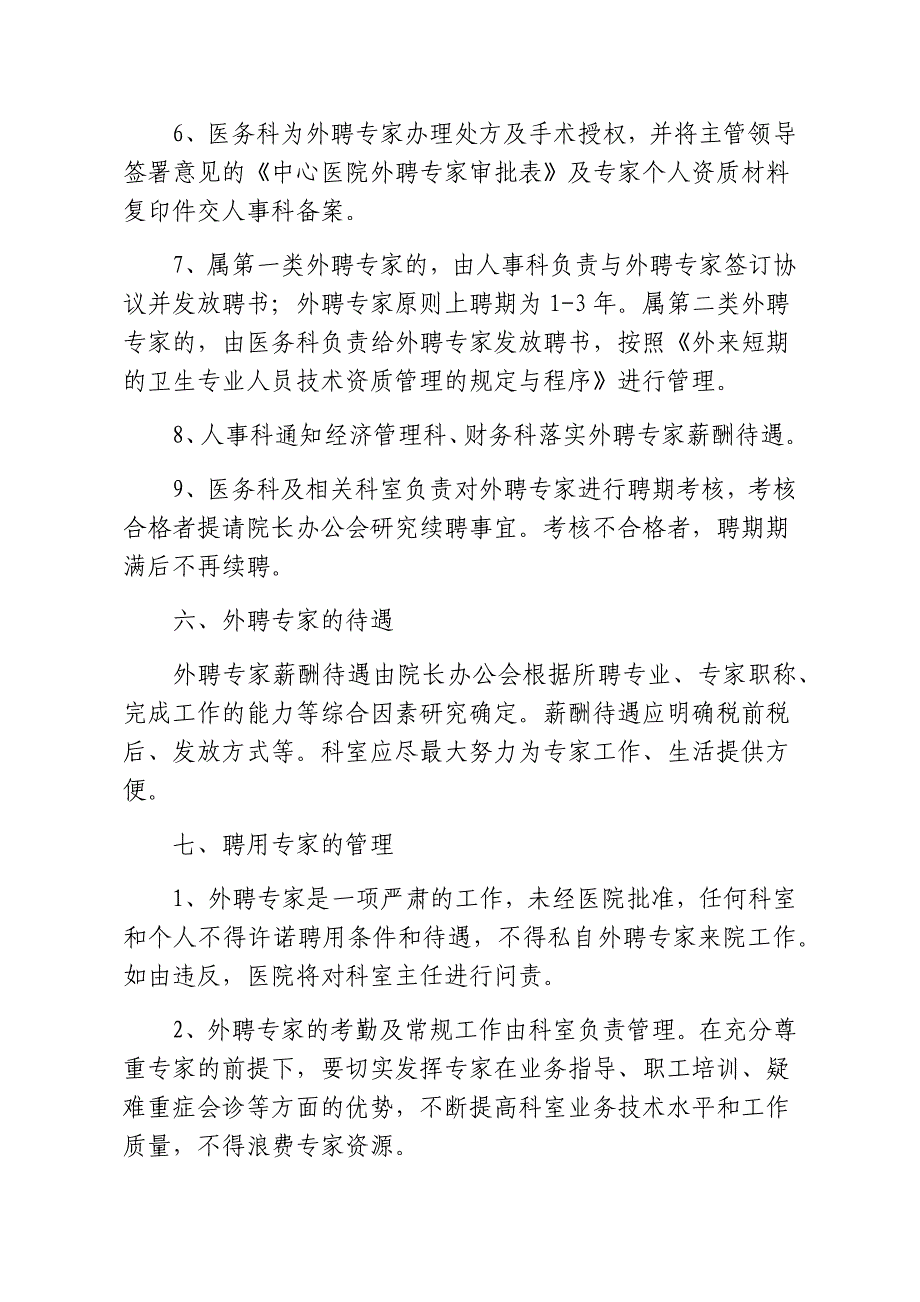 6、医务科为外聘专家办理处方及手术授权，并将主管领导
签署意见的《中心医院外聘专家审批表》及专家个人资质材料
复印件交人事科备案。
7、属第一类外聘专家的，由人事科负责与外聘专家签订协
议并发放聘书；外聘专家原则上聘期为 1-3 年。属第二类外聘
专家的，由医务科负责给外聘专家发放聘书，按照《外来短期
的卫生专业人员技术资质管理的规定与程序》进行管理。
8、人事科通知经济管理科、财务科落实外聘专家薪酬待遇。
9、医务科及相关科室负责对外聘专家进行聘期考核，考核
合格者提请院长办公会研究续聘事宜。考核不合格者，聘期期
满后不再续聘。
六、外聘专家的待遇
外聘专家薪酬待遇由院长办公会根据所聘专业、专家职称、
完成工作的能力等综合因素研究确定。薪酬待遇应明确税前税
后、发放方式等。科室应尽最大努力为专家工作、生活提供方
便。
七、聘用专家的管理
1、外聘专家是一项严肃的工作，未经医院批准，任何科室
和个人不得许诺聘用条件和待遇，不得私自外聘专家来院工作。
如由违反，医院将对科室主任进行问责。
2、外聘专家的考勤及常规工作由科室负责管理。在充分尊
重专家的前提下，要切实发挥专家在业务指导、职工培训、疑
难重症会诊等方面的优势，不断提高科室业务技术水平和工作
质量，不得浪费专家资源。